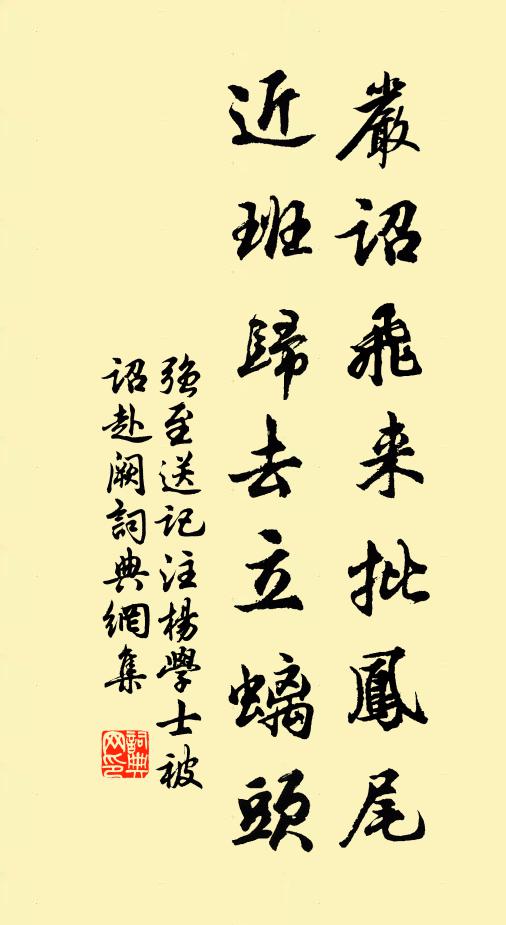 嚴詔飛來批鳳尾
近班歸去立螭頭
強至送記注楊學士被
詔赴闕詞典網集
詞典
网印